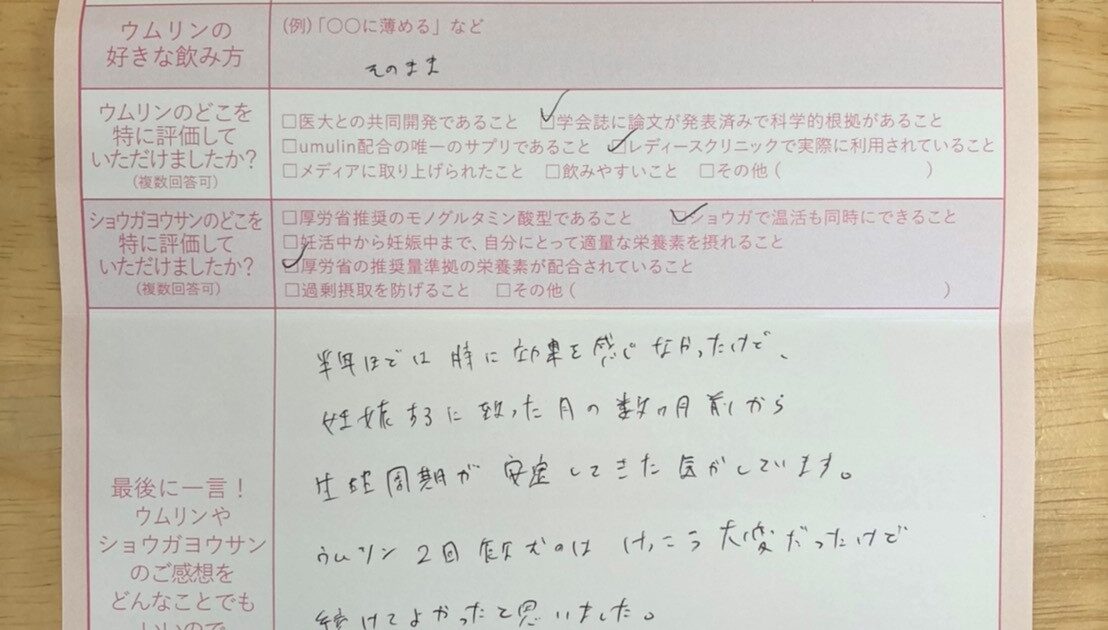 ウムリンの
好きな飲み方
(例)「〇〇に薄める」など
そのまま
ウムリンのどこを
特に評価して
いただけましたか?
(複数回答可)
□医大との共同開発であること □学会誌に論文が発表済みで科学的根拠があること
□umulin配合の唯一のサプリであること □レディースクリニックで実際に利用されていること
□メディアに取り上げられたこと □飲みやすいこと □その他( )
ショウガヨウサンのどこを
特に評価して
いただけましたか?
(複数回答可)
□厚労省推奨のモノグルタミン酸型であること □ショウガで温活も同時にできること
□妊活中から妊娠中まで、自分にとって適量な栄養素を摂れること
□厚労省の推奨量準拠の栄養素が配合されていること
□過剰摂取を防げること □その他( )
最後に一言!
ウムリンや
ショウガヨウサン
のご感想を
どんなことでも
いいので
半年ほどは特に効果を感じなかったけど、
妊娠するに致った月の数ヶ月前から
生理周期が安定してきた気がしています。
ウムリン2回飲むのはけっこう大変だったけど
続けてよかったと思いました。